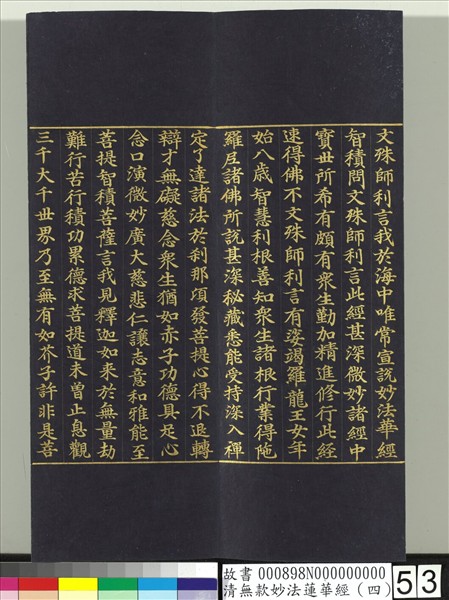 文殊師利言我於海中唯常宣說妙法華經
智積問文殊師利言此經甚深微妙諸經中
寶世所希有頗有衆生勤加精進修行此經
速得佛不文殊師利言有娑竭羅龍王女年
始八歲智慧利根善知衆生諸根行業得陁
羅尼諸佛所說甚深秘藏悉能受持深入禪
定了達諸法於刹那頃發菩提心得不退轉
辯才無礙慈念衆生猶如赤子功德具足心
念口演微妙廣大慈悲仁讓志意和雅能至
菩提智積菩薩言我見釋迦如來於無量劫
難行苦行積功累德求菩提道未曾止息觀
三千大千世界乃至無有如芥子許非是菩
故書 000898N000000000
清無款妙法蓮華經（四）
53